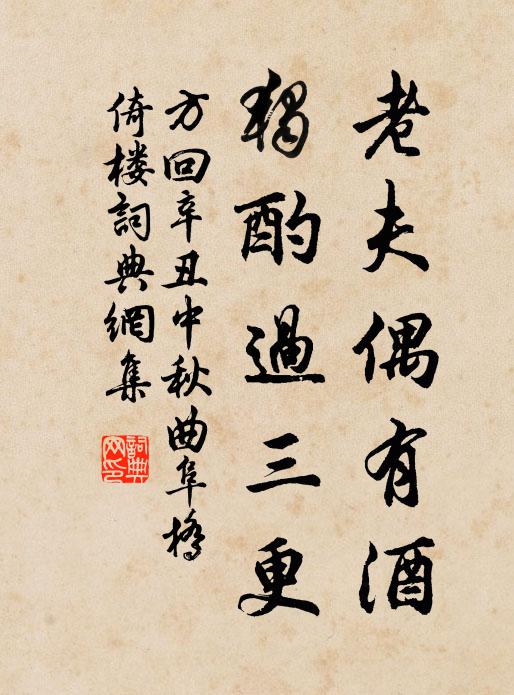 老夫偶有酒
獨酌過三更
方回辛丑中秋曲阜橋
倚楼詞典網集
詞典网印